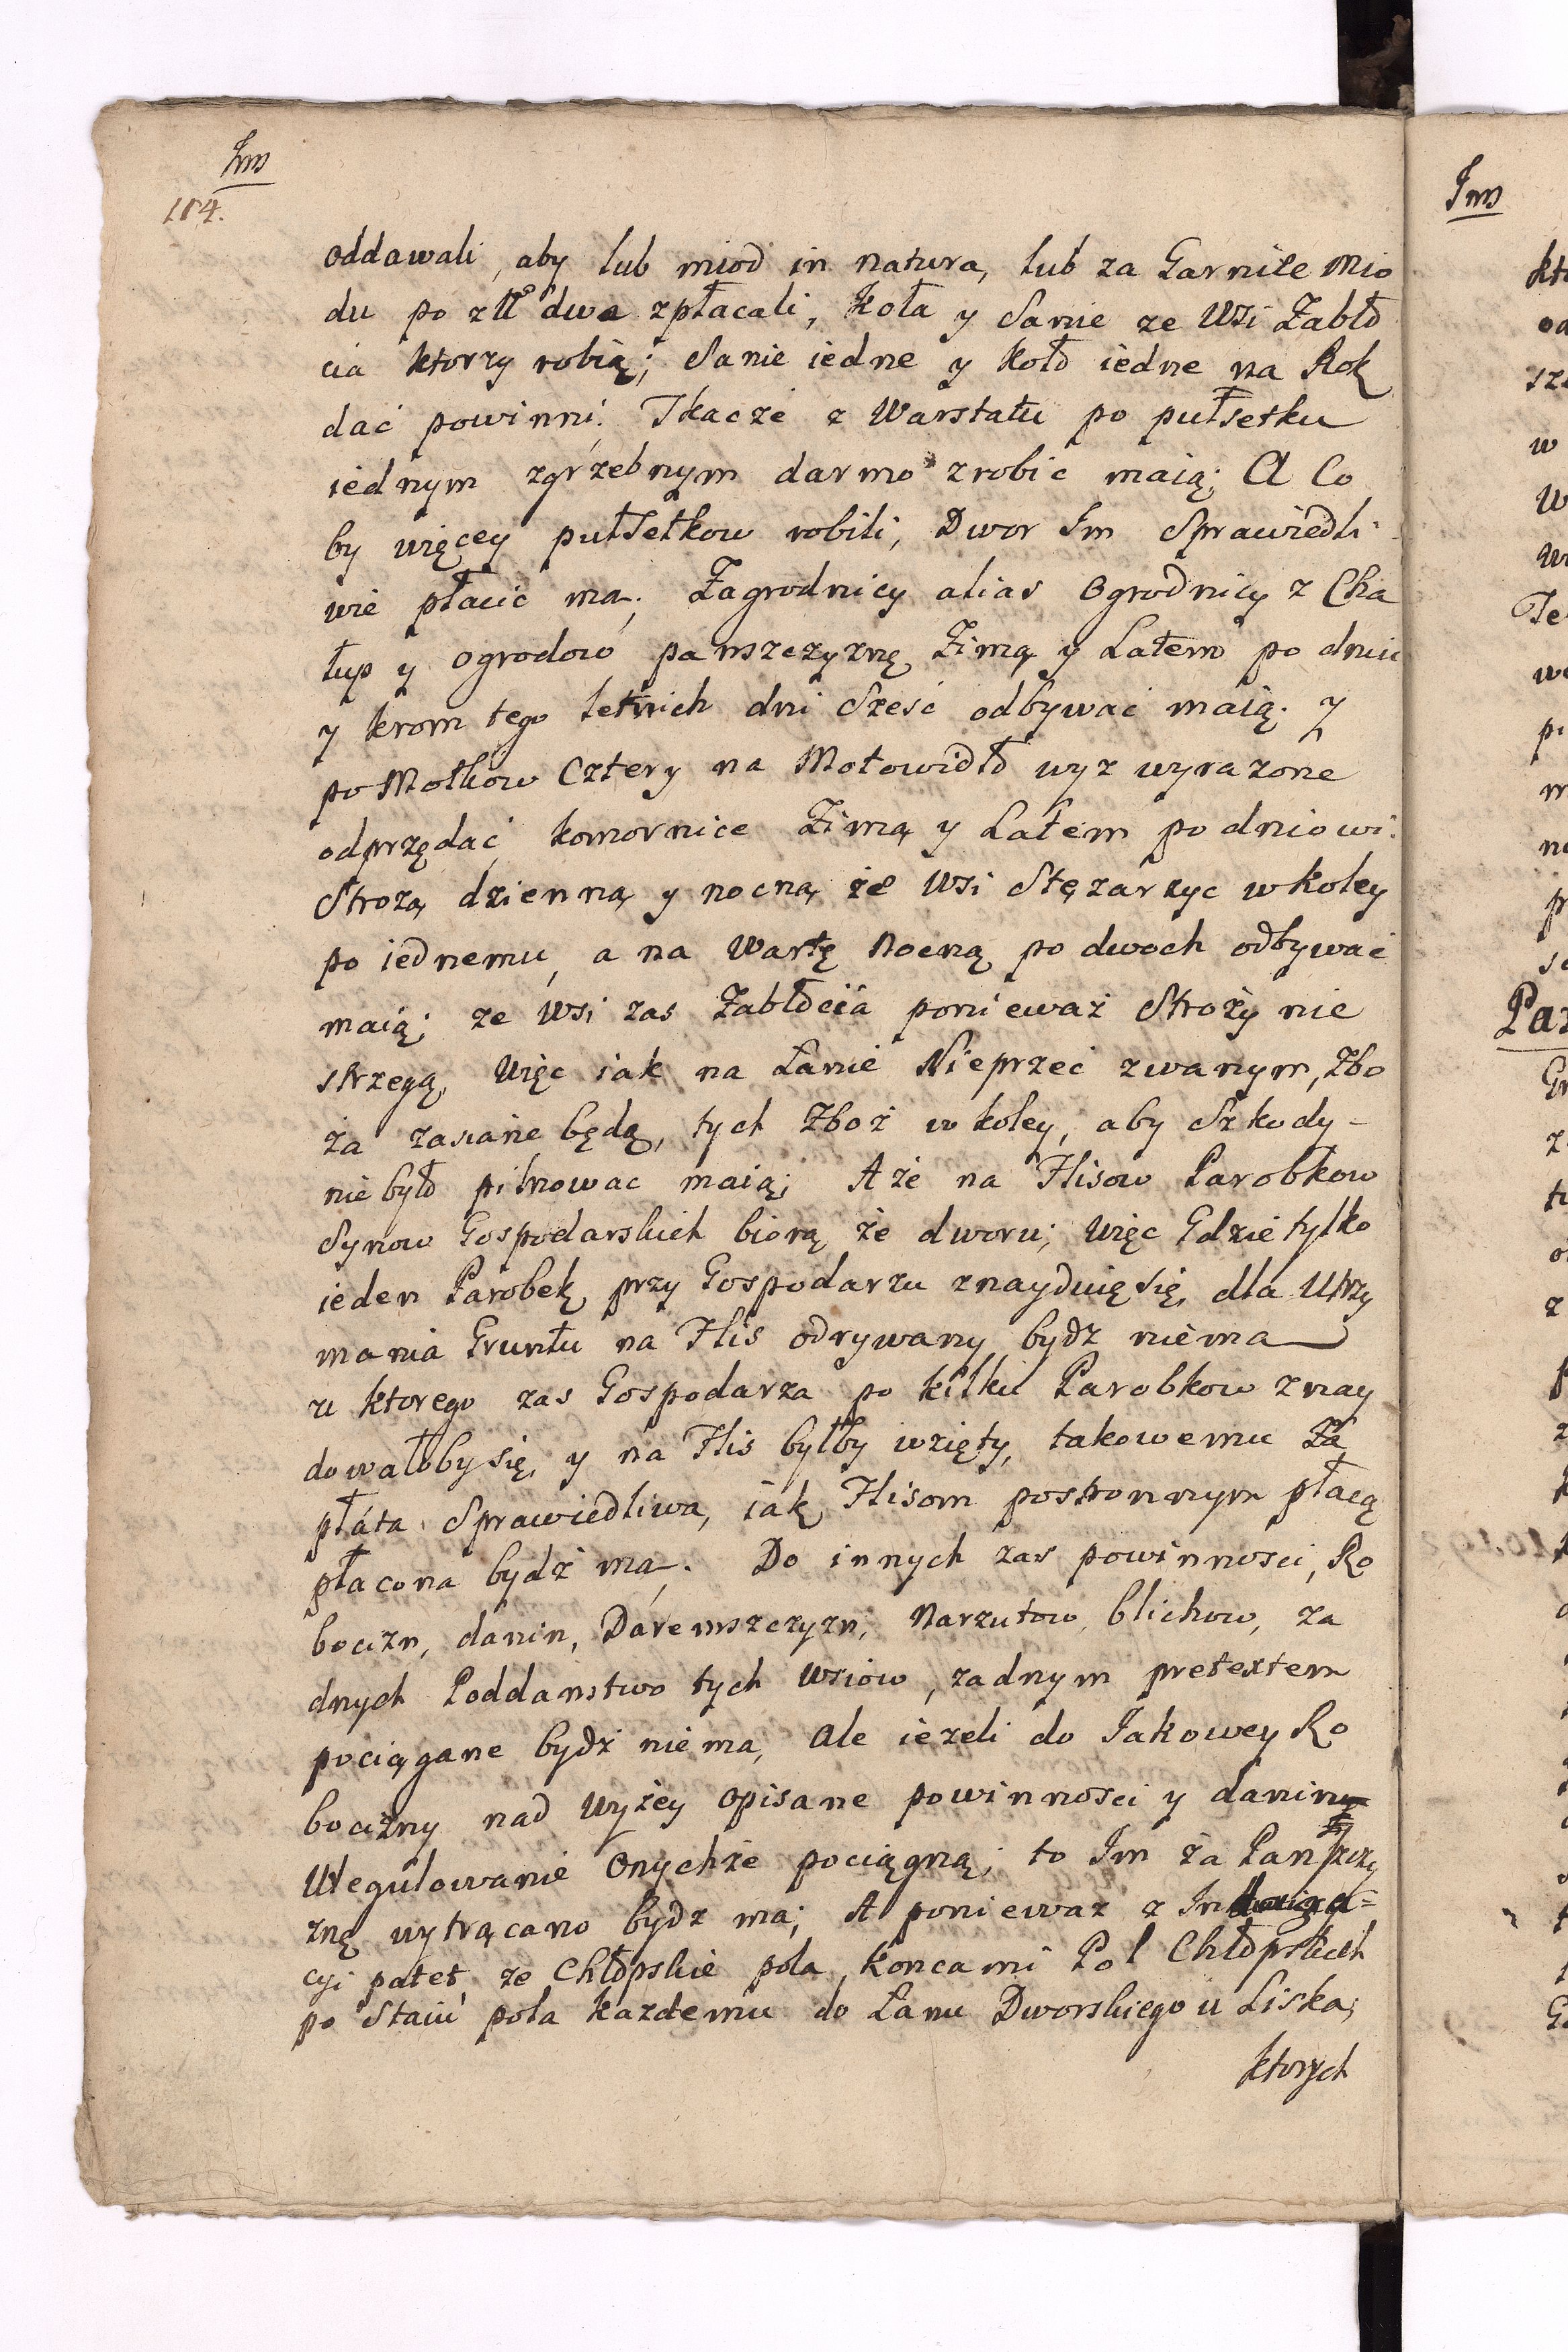 Im
184.
oddawali, aby lub miod in natura, lub za Garnile Mio
du po złł dwa zpłacali, Koła y Sanie ze Wsi Zabło
cia ktorzy robią; Sanie iedne y koło iedne na Rok
dać powinni. Tkacze z Warstatu po pułsetku
iednym zgrzebnym darmo zrobic maią; A Co
by więcey pułsetkow robili, Dwor Im Sprawiedli
wie płacic ma. Zagrodnicy alias Ogrodnicy z Cha
łup y ogrodow panszczyznę Zimą y Latem po dniu
y krom tego letnich dni Szesć odbywać maią. y
po Motkow Cztery na Motowidło wyz wyrazone
odprzędać, komornice Zimą y Latem po dniowi.
Strożą dzienną y nocną ze Wsi Stęzarzyc w koley
po iednemu, a na Wartę Nocną po dwoch odbywać
maią; ze Wsi zas Zabłocia ponieważ Stroży nie
strzegą, Więc iak na Łanie Nieprzeć zwanym, Zbo
ża zasiane będą, tych Zboż w koley, aby Szkody-
nie było pilnowac maią; A że na Flisow Parobkow
Synow Gospodarskich biorą ze dworu; więc Gdzie tylko
ieden Parobek przy Gospodarzu znayduię się, dla Utrzy
mania Gruntu na Flis odrywany bydz niema
u ktorego zas Gospodarza po kilku Parobkow znay
dowałoby się, y na Flis byłby wzięty, takowemu Za
płata Sprawiedliwa, iak Flisom postronnym płacą
płacona bydź ma. Do innych zas powinnosci, Ro
bocizn, danin, Daremszczyzn, Narzutow, blichow, za
dnych Poddanstwo tych Wsiow, zadnym pretextem
pociągane bydź nie ma, Ale ieżeli do Jakowey Ro
bocizny nad Wyżey Opisane powinnosci y daniny
Uregulowanie Onychże pociągną; to Im za Panszczy
znę wytrącano bydz ma; A ponieważ z
cyi patet ze Chłopskie pola, koncami Pol Chłopskich
po Staiu pola kazdemu do Łanu Dworskiego u Liska,
ktorych
Im